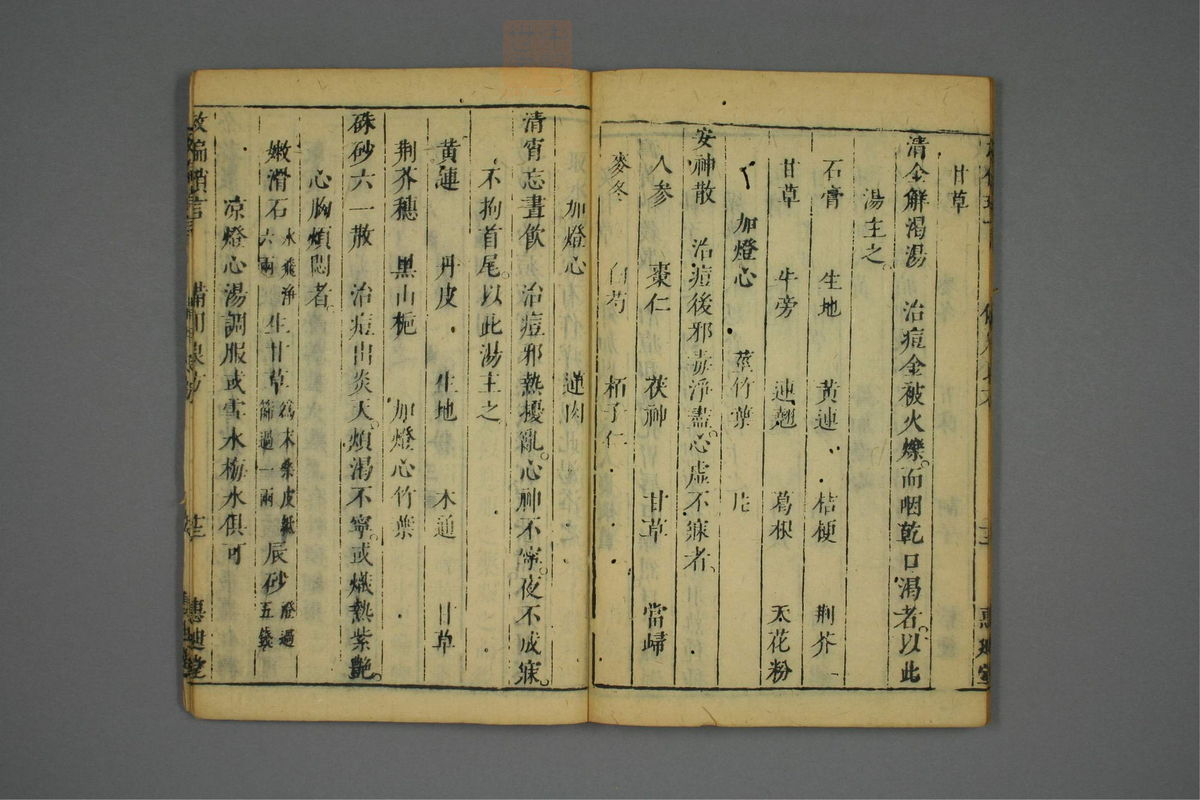 甘草
清金解渴湯　治痘金被火爍。而咽乾口渴者。以此
湯主之。
石膏　生地　黃連　桔梗　荆芥
甘草　牛旁　連翹　葛根　天花粉
加燈心　莖竹葉　片
安神散　治痘後邪毒淨盡。心虛不寐者。
人參　棗仁　茯神　甘草　當歸
麥冬　白芍　栢子仁
加燈心　蓮肉
清宵忘晝飲　治痘邪熱擾亂。心神不寧。夜不成寐。
不拘首尾。以此湯主之
黃連　丹皮　生地　木通　甘草
荆芥穗　黑山梔　加燈心竹葉
硃砂六一散　治痘出炎天。煩渴不寧。或熾熱紫艷。
心胸煩悶者
嫩滑石水飛淨六兩　生甘草為末桑皮紙篩過一兩　辰砂澄過五錢
凉燈心湯調服或雪水梅水俱可
救偏瑣言　備用良方　惠迪堂